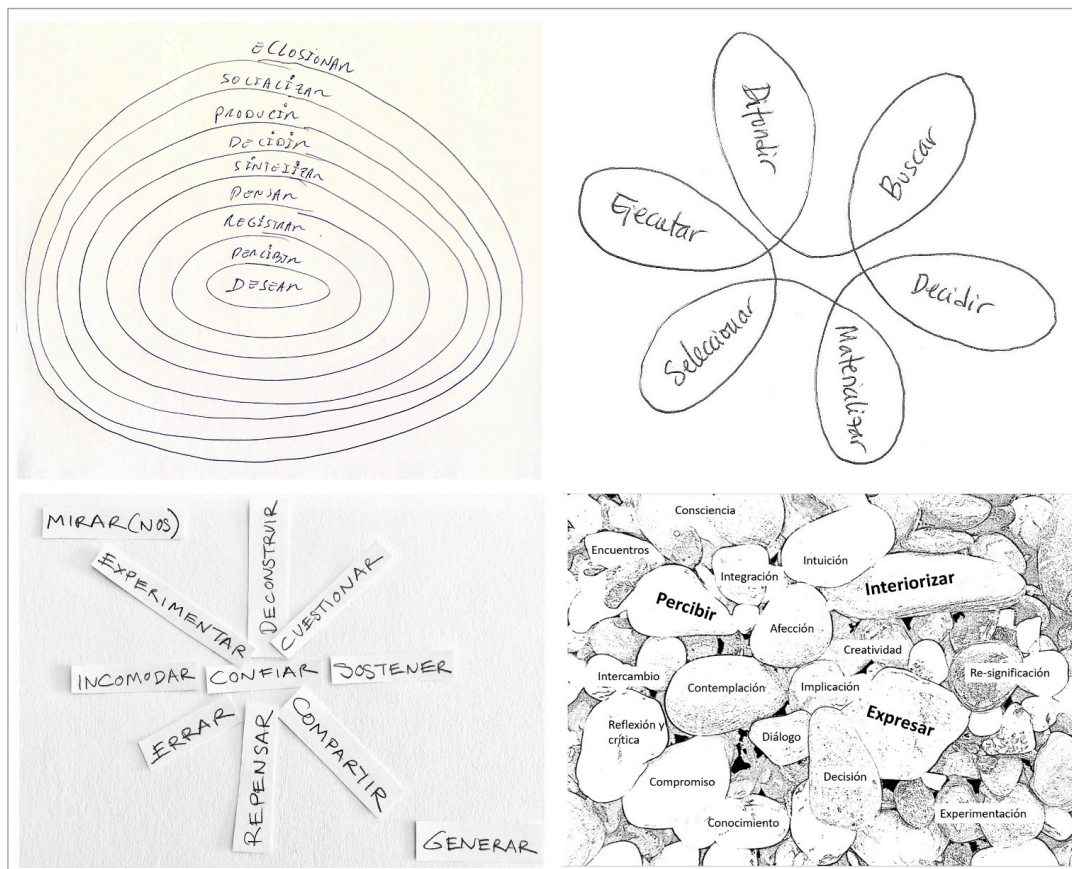 ECLOSIONAR
SOCIALIZAR
PRODUCIR
DECIDIR
SINTETIZAR
PENSAR
REGISTRAR
PERCIBIR
DESEAR
Difundir
Buscar
Ejecutar
Decidir
Seleccionar
Materializar
MIRAR(NOS)
EXPERIMENTAR
DECONSTRUIR
CUESTIONAR
INCOMODAR
CONFIAR
SOSTENER
ERRAR
REPENSAR
COMPARTIR
GENERAR
Consciencia
Encuentros
Integración
Intuición
Percibir
Interiorizar
Afección
Creatividad
Intercambio
Contemplación
Implicación
Re-significación
Reflexión y
crítica
Diálogo
Expresar
Compromiso
Decisión
Conocimiento
Experimentación